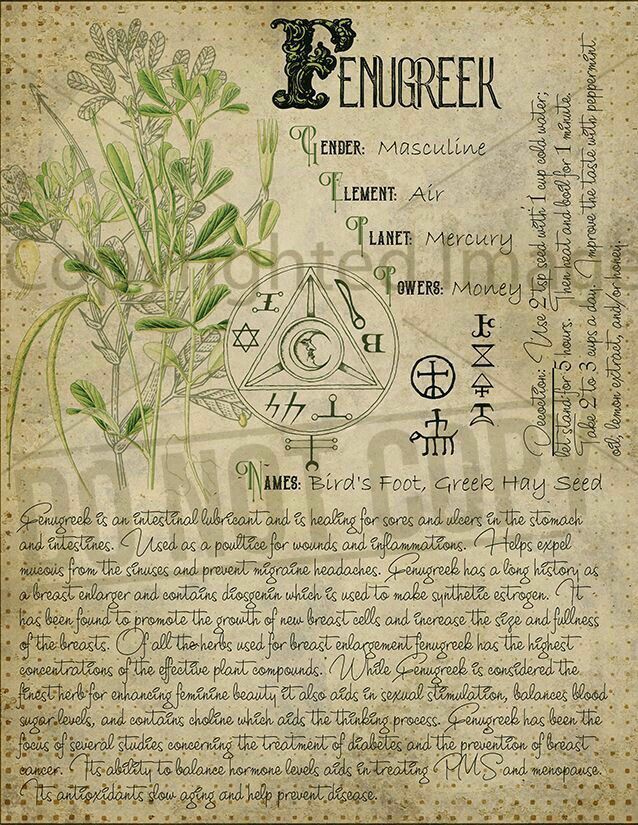 FENUGREEK
GENDER: Masculine
ELEMENT: Air
PLANET: Mercury
POWERS: Money
Copyrighted Image
DO NOT COPY
Decoction: Use 2 tsp seed with 1 cup cold water;
let stand for 5 hours. Then heat and boil for 1 minute.
Take 2 to 3 cups a day. Improve the taste with peppermint
oil, lemon extract, and/or honey.
B
NAMES: Bird's Foot, Greek Hay Seed
Fenugreek is an intestinal lubricant and is healing for sores and ulcers in the stomach
and intestines. Used as a poultice for wounds and inflammations. Helps expel
mucous from the sinuses and prevent migraine headaches. Fenugreek has a long history as
a breast enlarger and contains diosgenin which is used to make synthetic estrogen. It
has been found to promote the growth of new breast cells and increase the size and fullness
of the breasts. Of all the herbs used for breast enlargement fenugreek has the highest
concentrations of the effective plant compounds. While Fenugreek is considered the
finest herb for enhancing feminine beauty it also aids in sexual stimulation, balances blood
sugar levels, and contains choline which aids the thinking process. Fenugreek has been the
focus of several studies concerning the treatment of diabetes and the prevention of breast
cancer. Its ability to balance hormone levels aids in treating PMS and menopause.
Its antioxidants slow aging and help prevent disease.